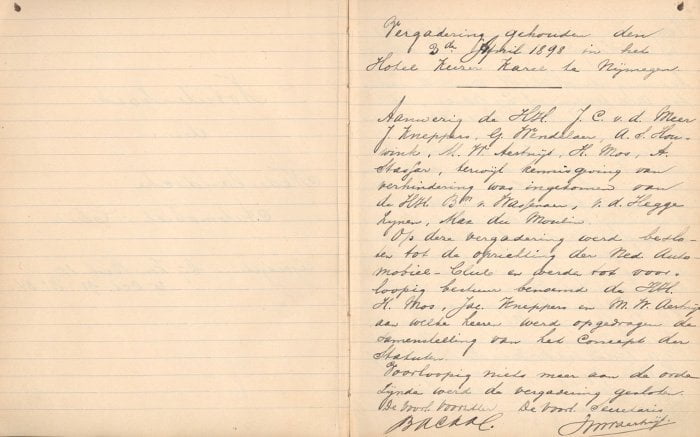 Vergadering gehouden den
3de April 1898 in het
Hotel Keizer Karel te Nijmegen
Aanwezig de HH. J. C. v. d. Meer
J. Kneppers, G. Wendelaar, A. S. Hou-
wink, M. W. Aertnijs, H. Mos, A.
Stassar, terwijl kennisgeving van
verhindering was ingekomen van
de HH. Bn v. Wassenaer, v. d. Hegge
Zijnen, Max du Moulin.
Op deze vergadering werd beslo-
ten tot de oprichting der Ned. Auto-
mobiel-Club en werden tot voor-
loopig bestuur benoemd de HH.
H. Mos, Jac. Kneppers en M. W. Aertnijs
aan welke heeren werd opgedragen de
samenstelling van het Concept der
Statuten.
Voorloopig niets meer aan de orde
zijnde werd de vergadering gesloten.
De Voorl. Voorzitter De Voorl. Secretaris